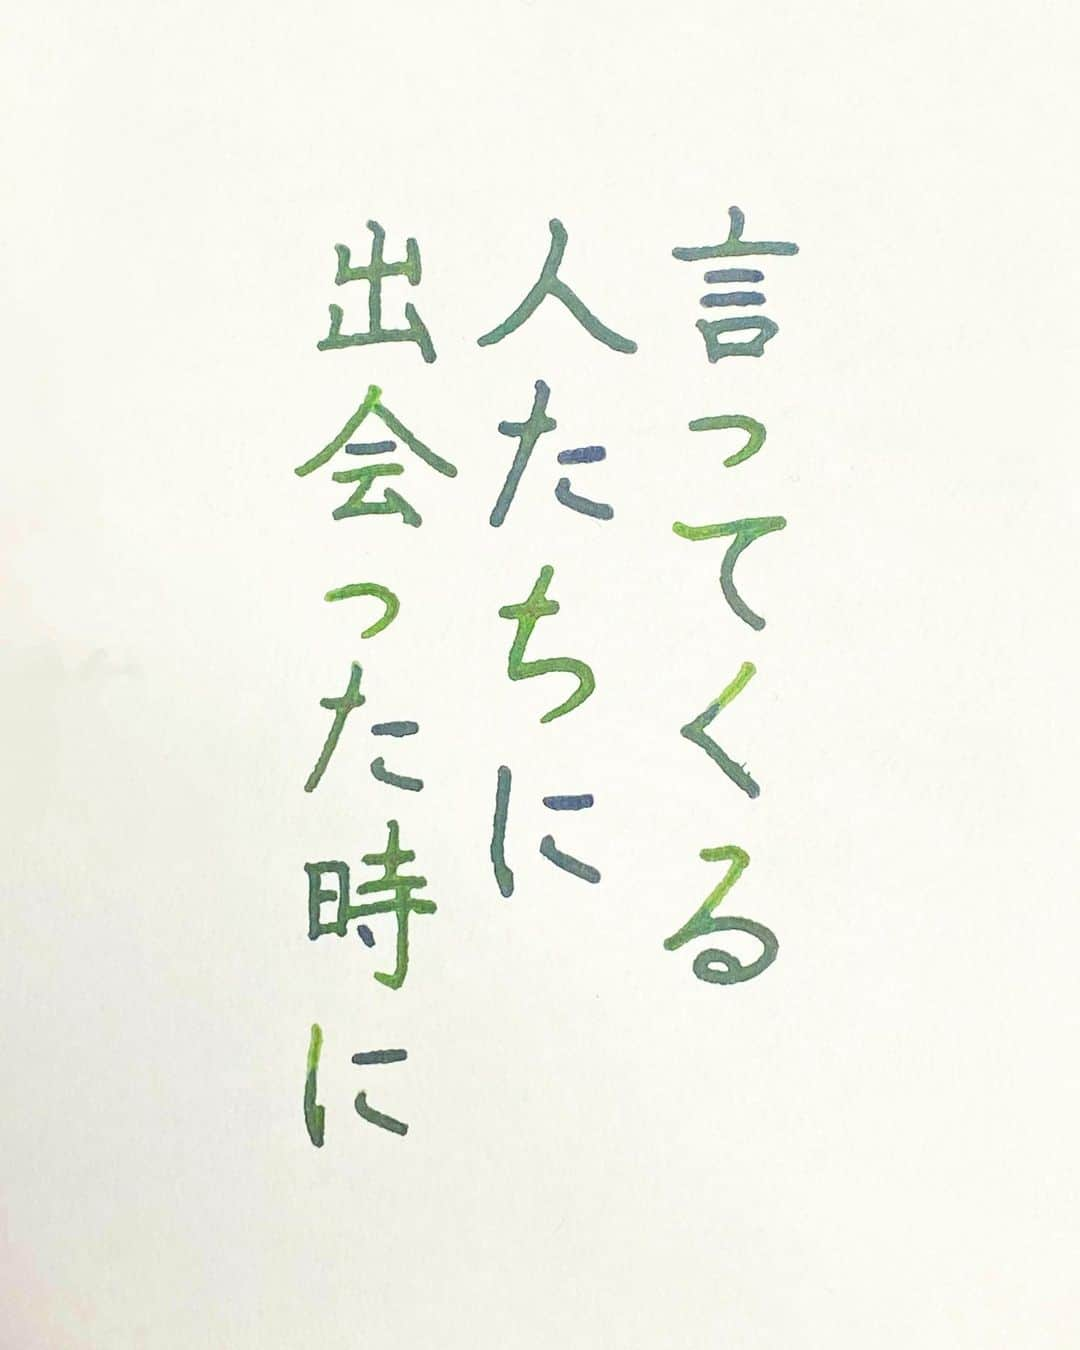 言ってくる
人たちに
出会った時に